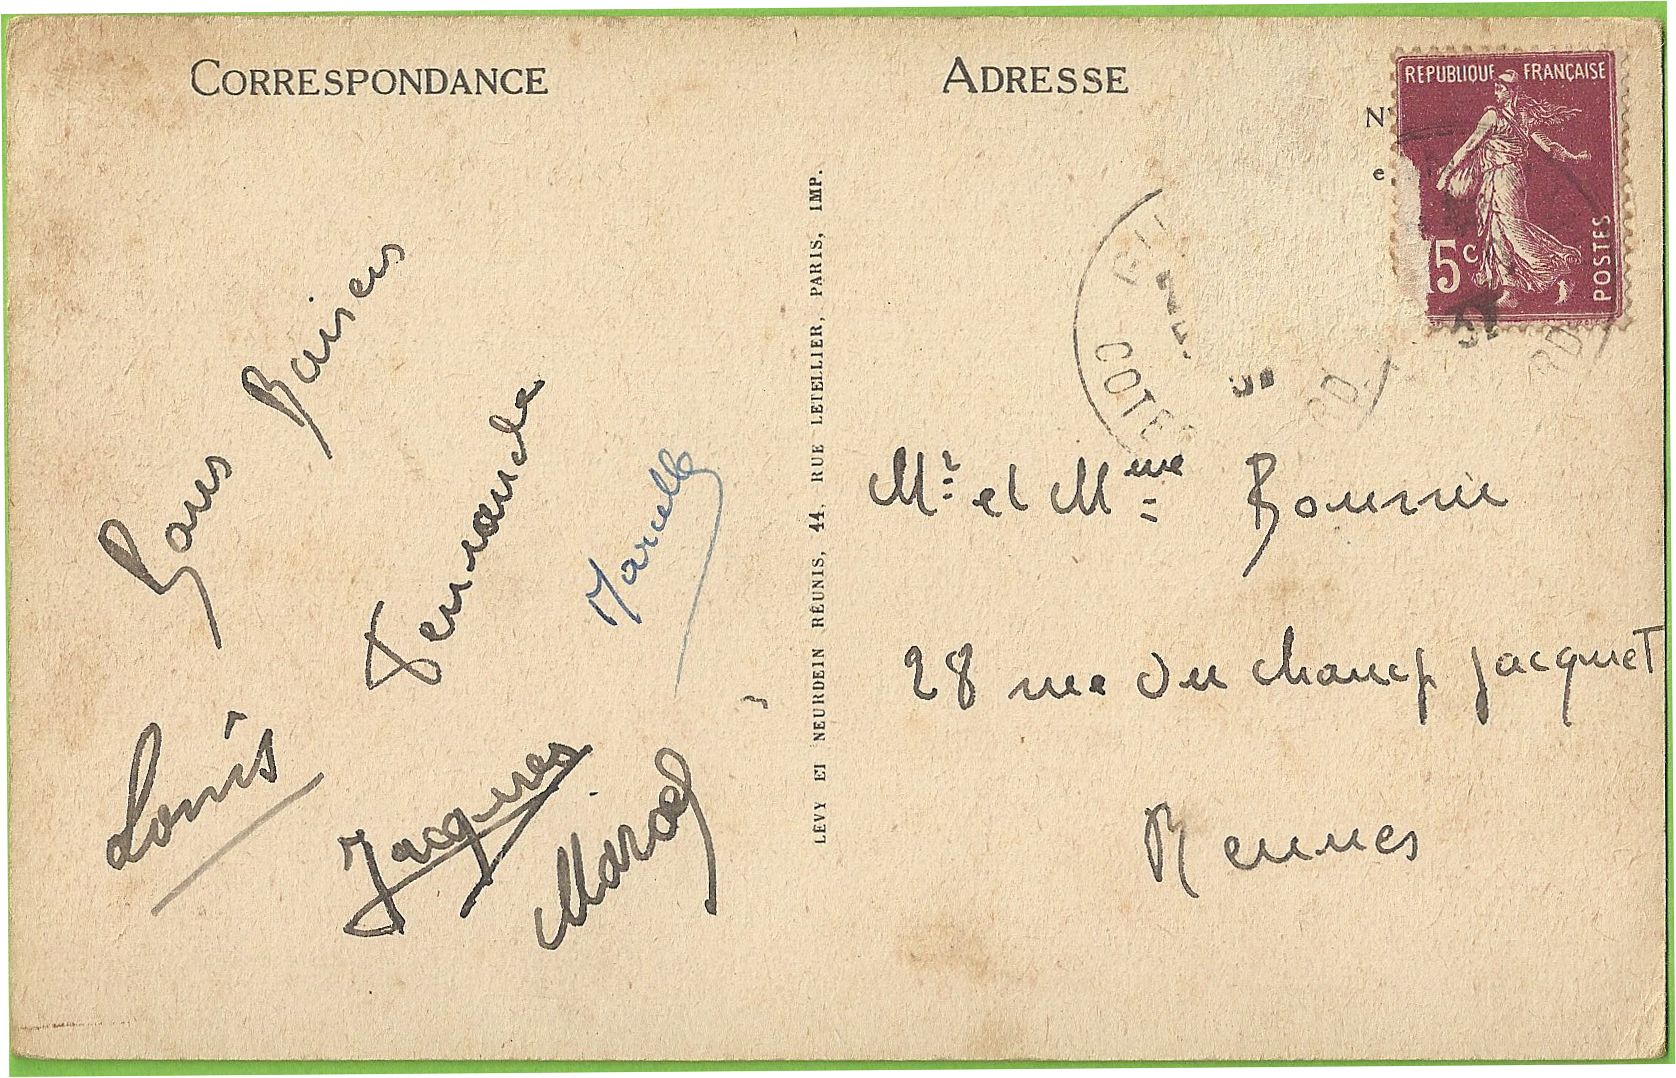 CORRESPONDANCE
ADRESSE
REPUBLIQUE FRANÇAISE
15c
POSTES
COTES
37
LEVY ET NEURDEIN RÉUNIS, 44, RUE LETELLIER, PARIS, IMP.
Bons Baisers
Fernande
Marcelle
Louis
Jacques
Mr et Mme
28 rue du champ Jacquet
Rennes